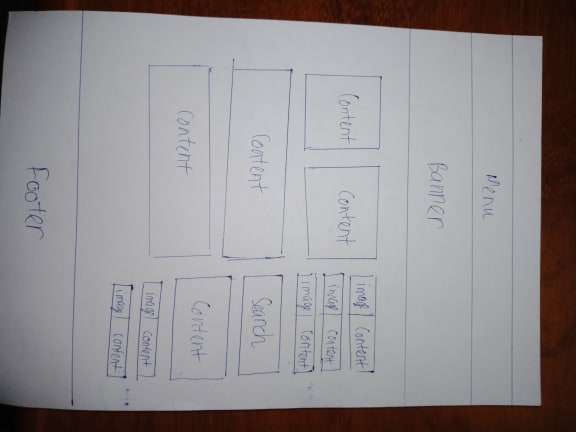 Menu
Banner
Content
Content
Content
Content
image Content
image Content
image Content
Search
Content
image Content
image Content
Footer